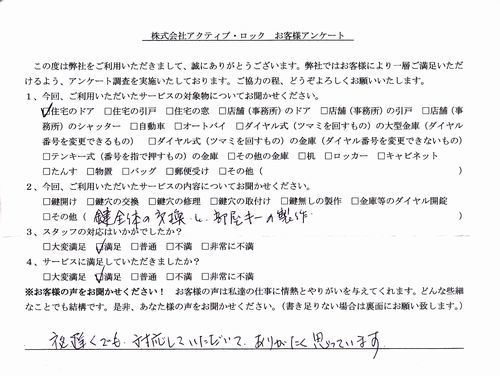 株式会社アクティブ・ロック　お客様アンケート
この度は弊社をご利用いただきまして、誠にありがとうございます。弊社ではお客様により一層ご満足いただ
けるよう、アンケート調査を実施いたしております。ご協力の程、どうぞよろしくお願いいたします。
1、今回、ご利用いただいたサービスの対象物についてお聞かせください。
☑住宅のドア　□住宅の引戸　□住宅の窓　□店舗（事務所）のドア　□店舗（事務所）の引戸　□店舗（事
務所）のシャッター　□自動車　□オートバイ　□ダイヤル式（ツマミを回すもの）の大型金庫（ダイヤル
番号を変更できるもの）　□ダイヤル式（ツマミを回すもの）の金庫（ダイヤル番号を変更できないもの）
□テンキー式（番号を指で押すもの）の金庫　□その他の金庫　□机　□ロッカー　□キャビネット
□たんす　□物置　□バッグ　□郵便受け　□その他（　）
2、今回、ご利用いただいたサービスの内容についてお聞かせください。
□鍵開け　□鍵穴の交換　□鍵穴の修理　□鍵穴の取付け　□鍵無しの製作　□金庫等のダイヤル開錠
□その他（鍵全体の交換と、部屋キーの製作）
3、スタッフの対応はいかがでしたか？
□大変満足　☑満足　□普通　□不満　□非常に不満
4、サービスに満足していただきましたか？
□大変満足　☑満足　□普通　□不満　□非常に不満
※お客様の声をお聞かせください！　お客様の声は私達の仕事に情熱とやりがいを与えてくれます。どんな些細
なことでも結構です。是非、あなた様の声をお聞かせください。（書き足りない場合は裏面にお願い致します。）
夜遅くでも、対応していただいて、ありがたく思っています。